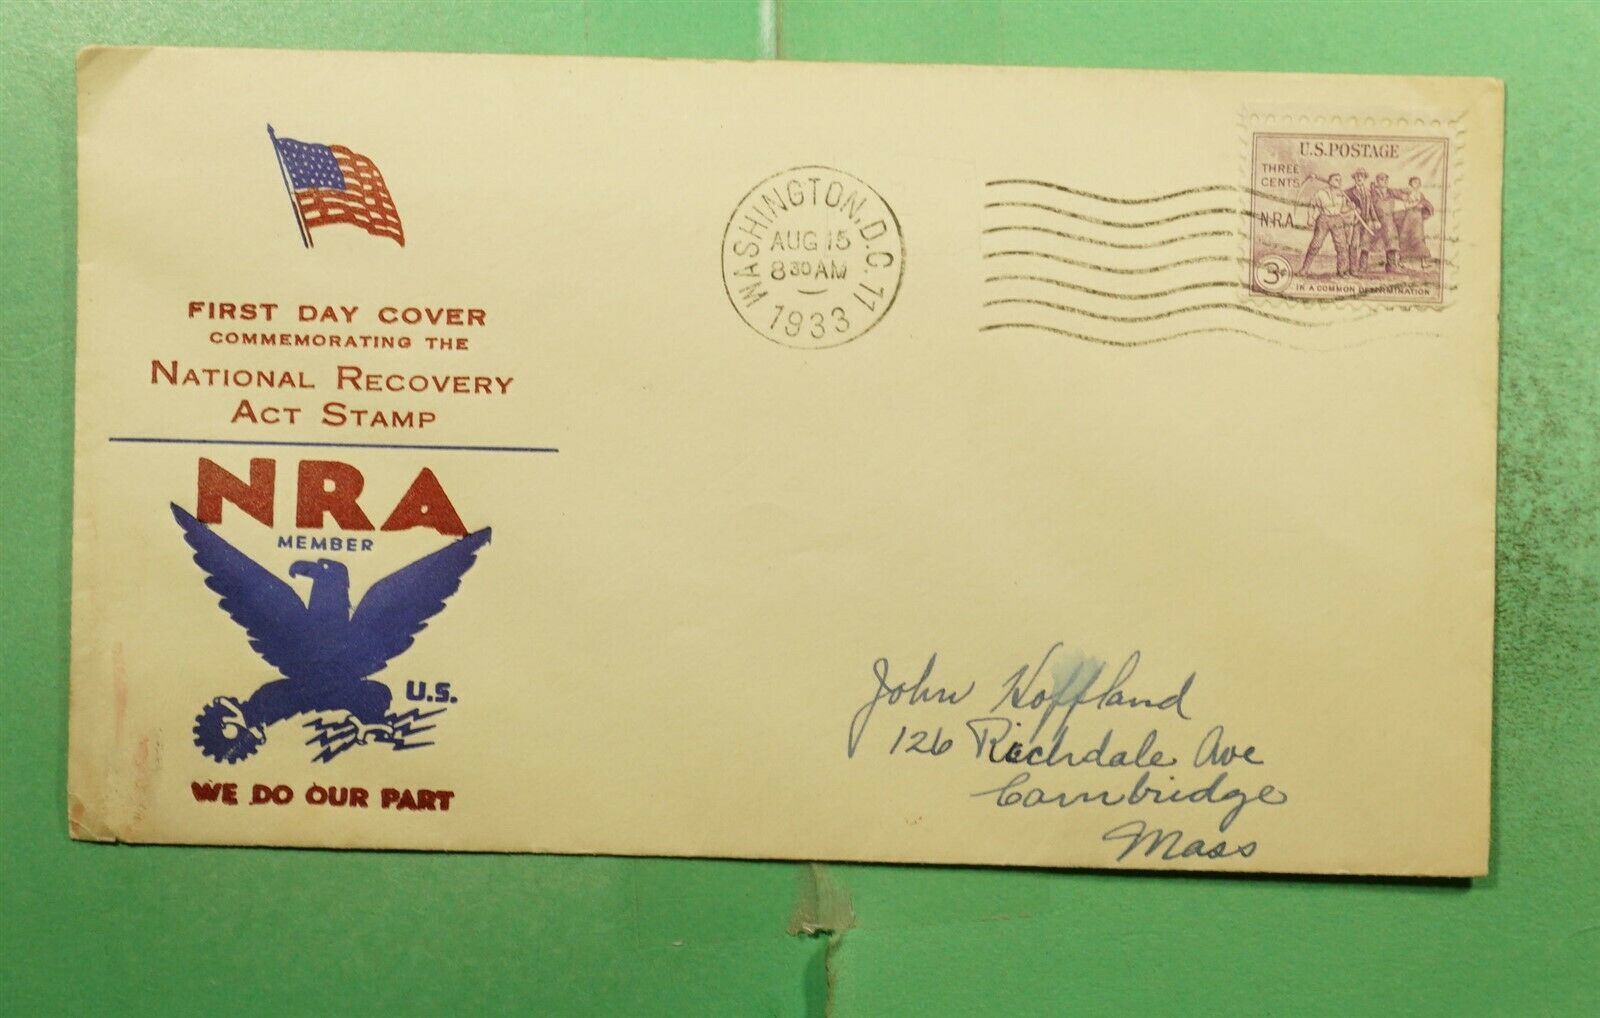 FIRST DAY COVER
COMMEMORATING THE
NATIONAL RECOVERY
ACT STAMP
NRA
MEMBER
U.S.
WE DO OUR PART
WASHINGTON, D.C. 11
AUG 15
8 30 AM
1933
U.S. POSTAGE
THREE
CENTS
N.R.A.
3¢
IN A COMMON DETERMINATION
John Hoffland
126 Richdale Ave
Cambridge
Mass